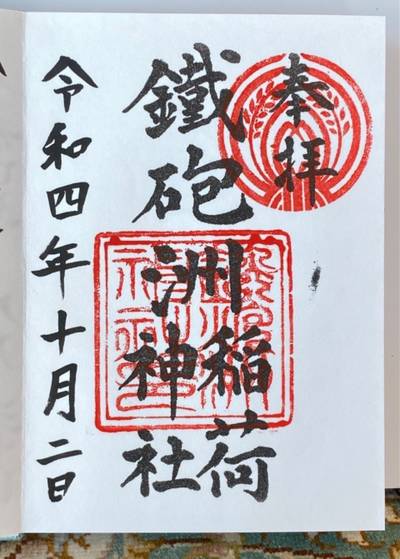 奉拝
鐵砲洲稲荷神社
令和四年十月二日